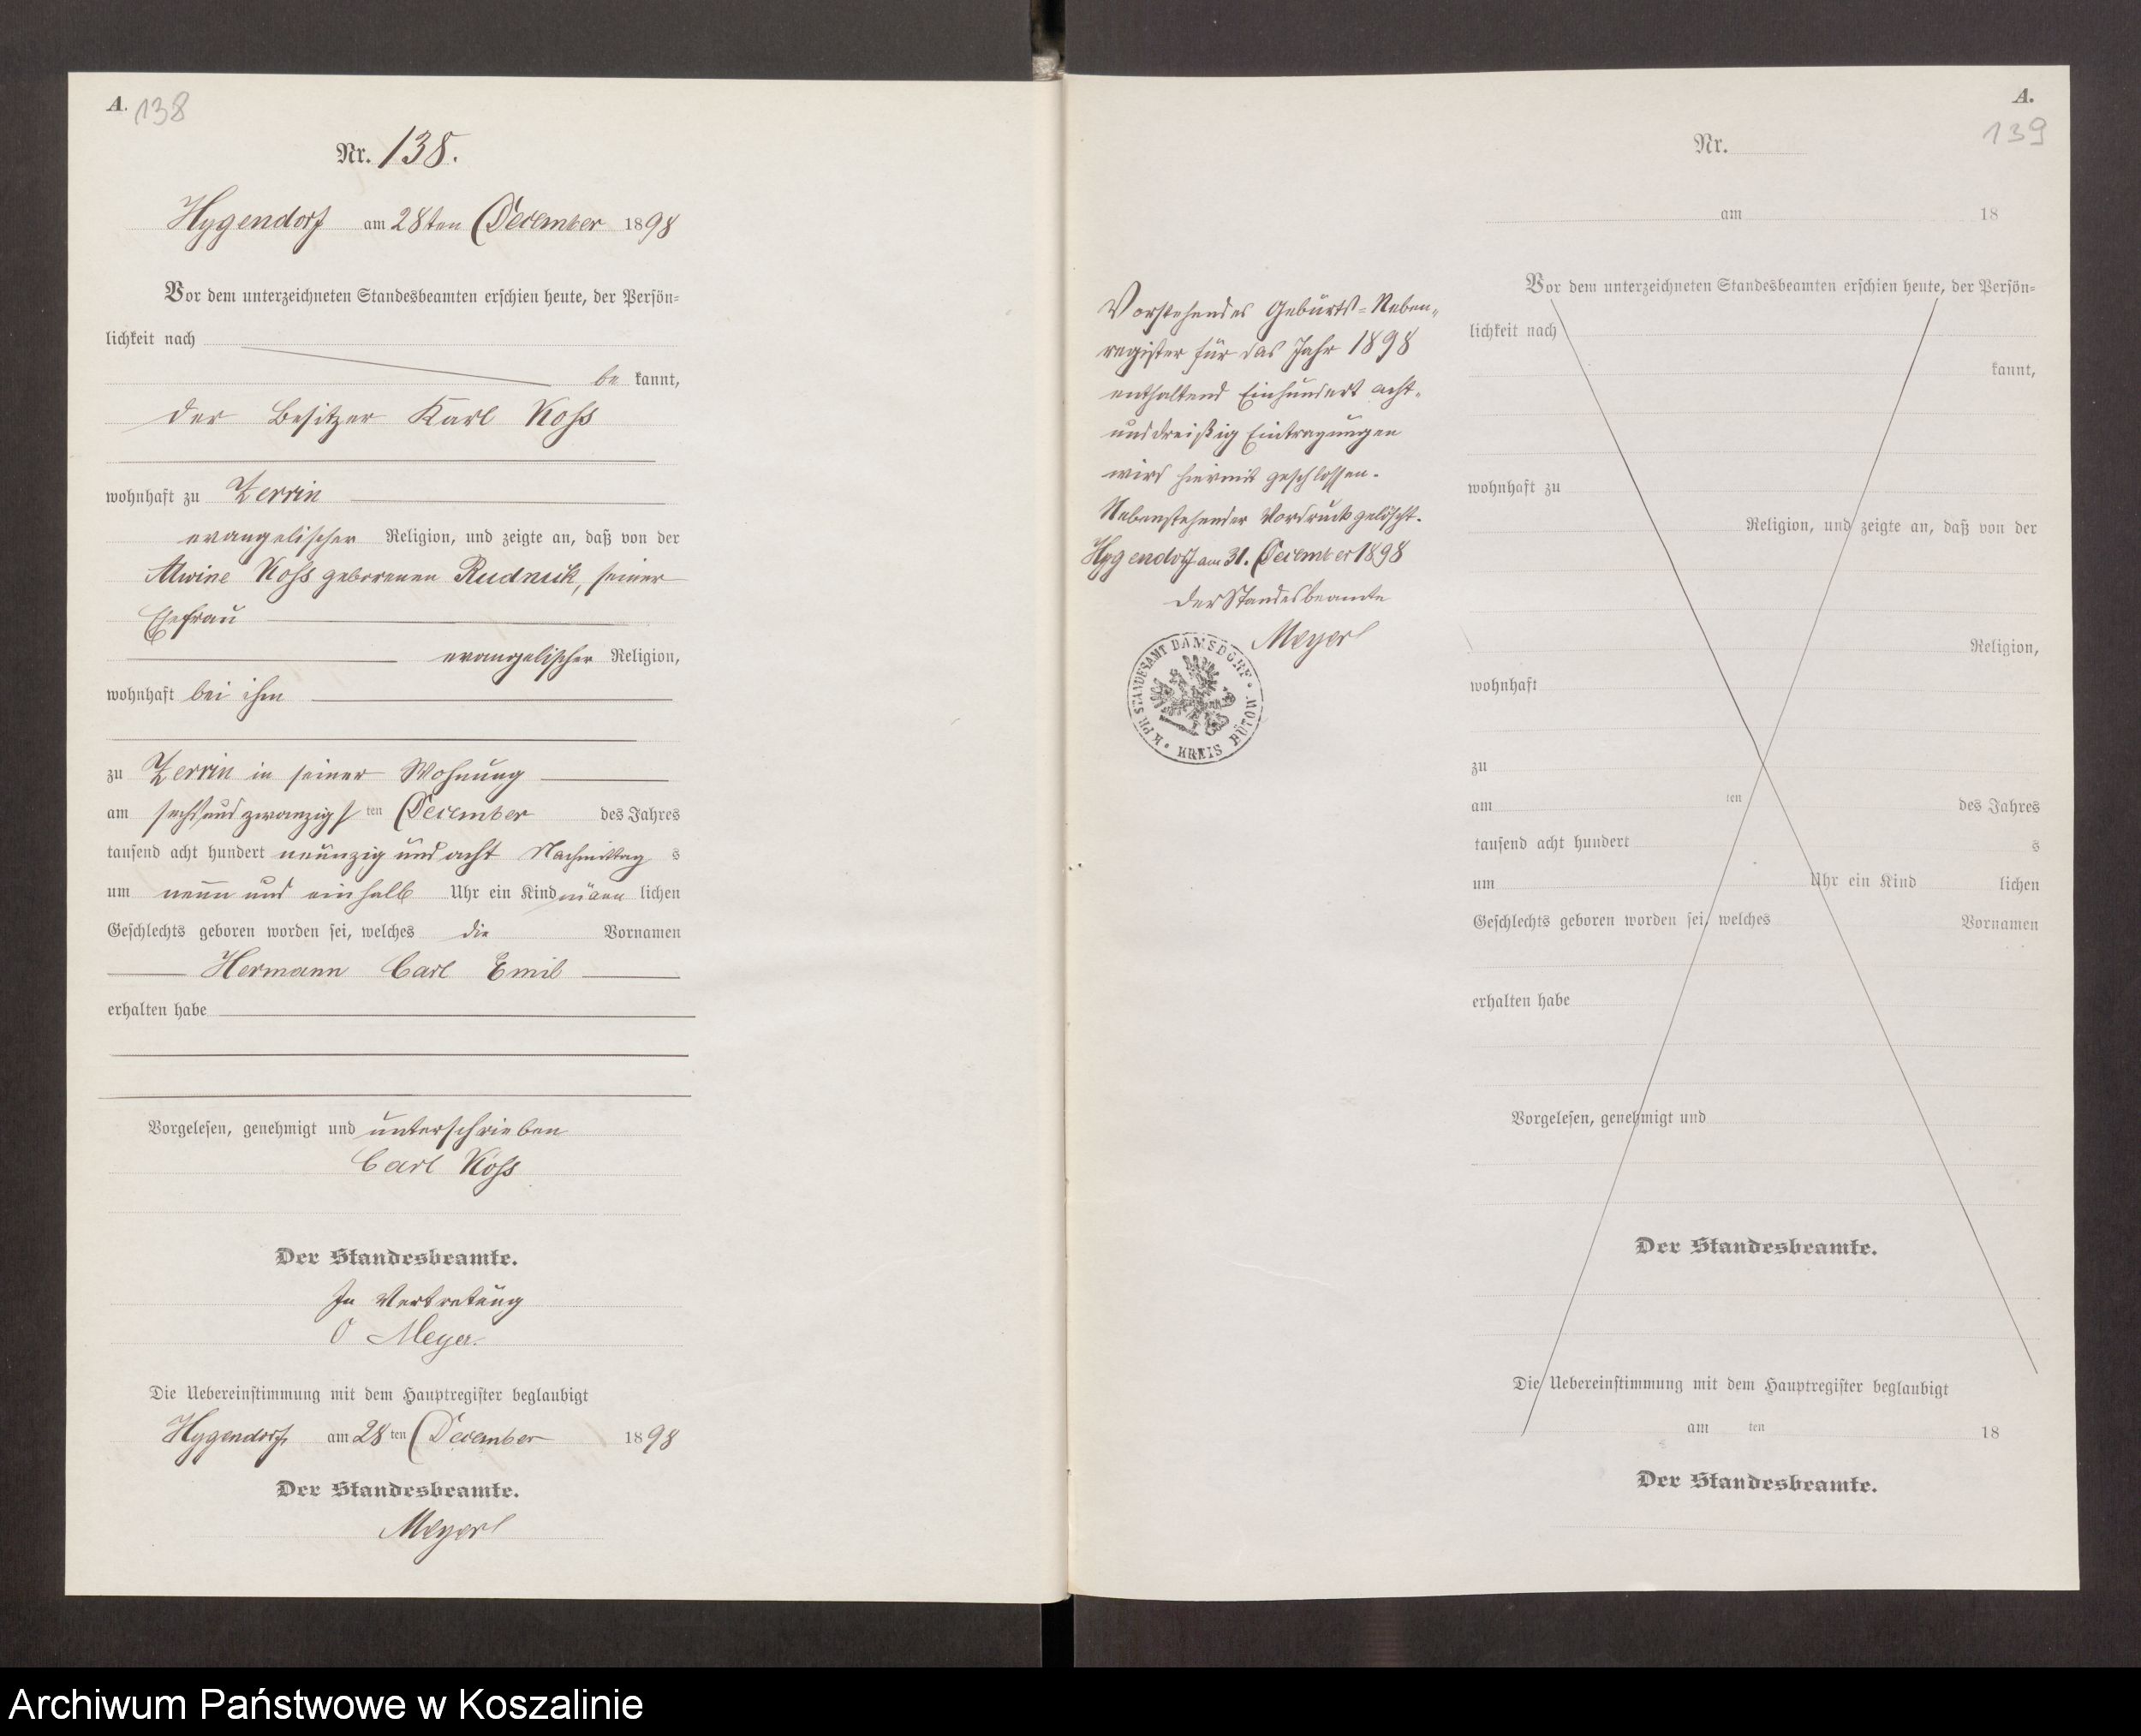 A. 138
Nr. 138.
Hygendorf am 28ten December 1898
Vor dem unterzeichneten Standesbeamten erschien heute, der Persön=
lichkeit nach
be kannt,
der Besitzer Karl Koss
wohnhaft zu Zerrin
evangelischer Religion, und zeigte an, daß von der
Alwine Koss geborenen Rudnick, seiner
Ehefrau
evangelischer Religion,
wohnhaft bei ihm
zu Zerrin in seiner Wohnung
am sechsundzwanzigsten December des Jahres
tausend acht hundert neunzig und acht Nachmittag s
um neun und einhalb Uhr ein Kind männ lichen
Geschlechts geboren worden sei, welches die Vornamen
Hermann Carl Emil
erhalten habe
Vorgelesen, genehmigt und unterschrieben
Carl Koss
Der Standesbeamte.
In Vertretung
O Meyer.
Die Uebereinstimmung mit dem Hauptregister beglaubigt
Hygendorf, am 28 ten December 1898
Der Standesbeamte.
Meyer
Vorstehendes Geburts=Neben=
register für das Jahr 1898
enthaltend Einhundert acht=
unddreißig Eintragungen
wird hiermit geschlossen.
Nebenstehender Vordruck gelöscht.
Hygendorf am 31. December 1898
Der Standesbeamte
Meyer
K. PR. STANDESAMT DAMSDORF • KREIS BÜTOW •
A.
139
Nr.
am 18
Vor dem unterzeichneten Standesbeamten erschien heute, der Persön=
lichkeit nach
kannt,
wohnhaft zu
Religion, und zeigte an, daß von der
Religion,
wohnhaft
zu
am ten des Jahres
tausend acht hundert s
um Uhr ein Kind lichen
Geschlechts geboren worden sei, welches Vornamen
erhalten habe
Vorgelesen, genehmigt und
Der Standesbeamte.
Die Uebereinstimmung mit dem Hauptregister beglaubigt
am ten 18
Der Standesbeamte.
Archiwum Państwowe w Koszalinie